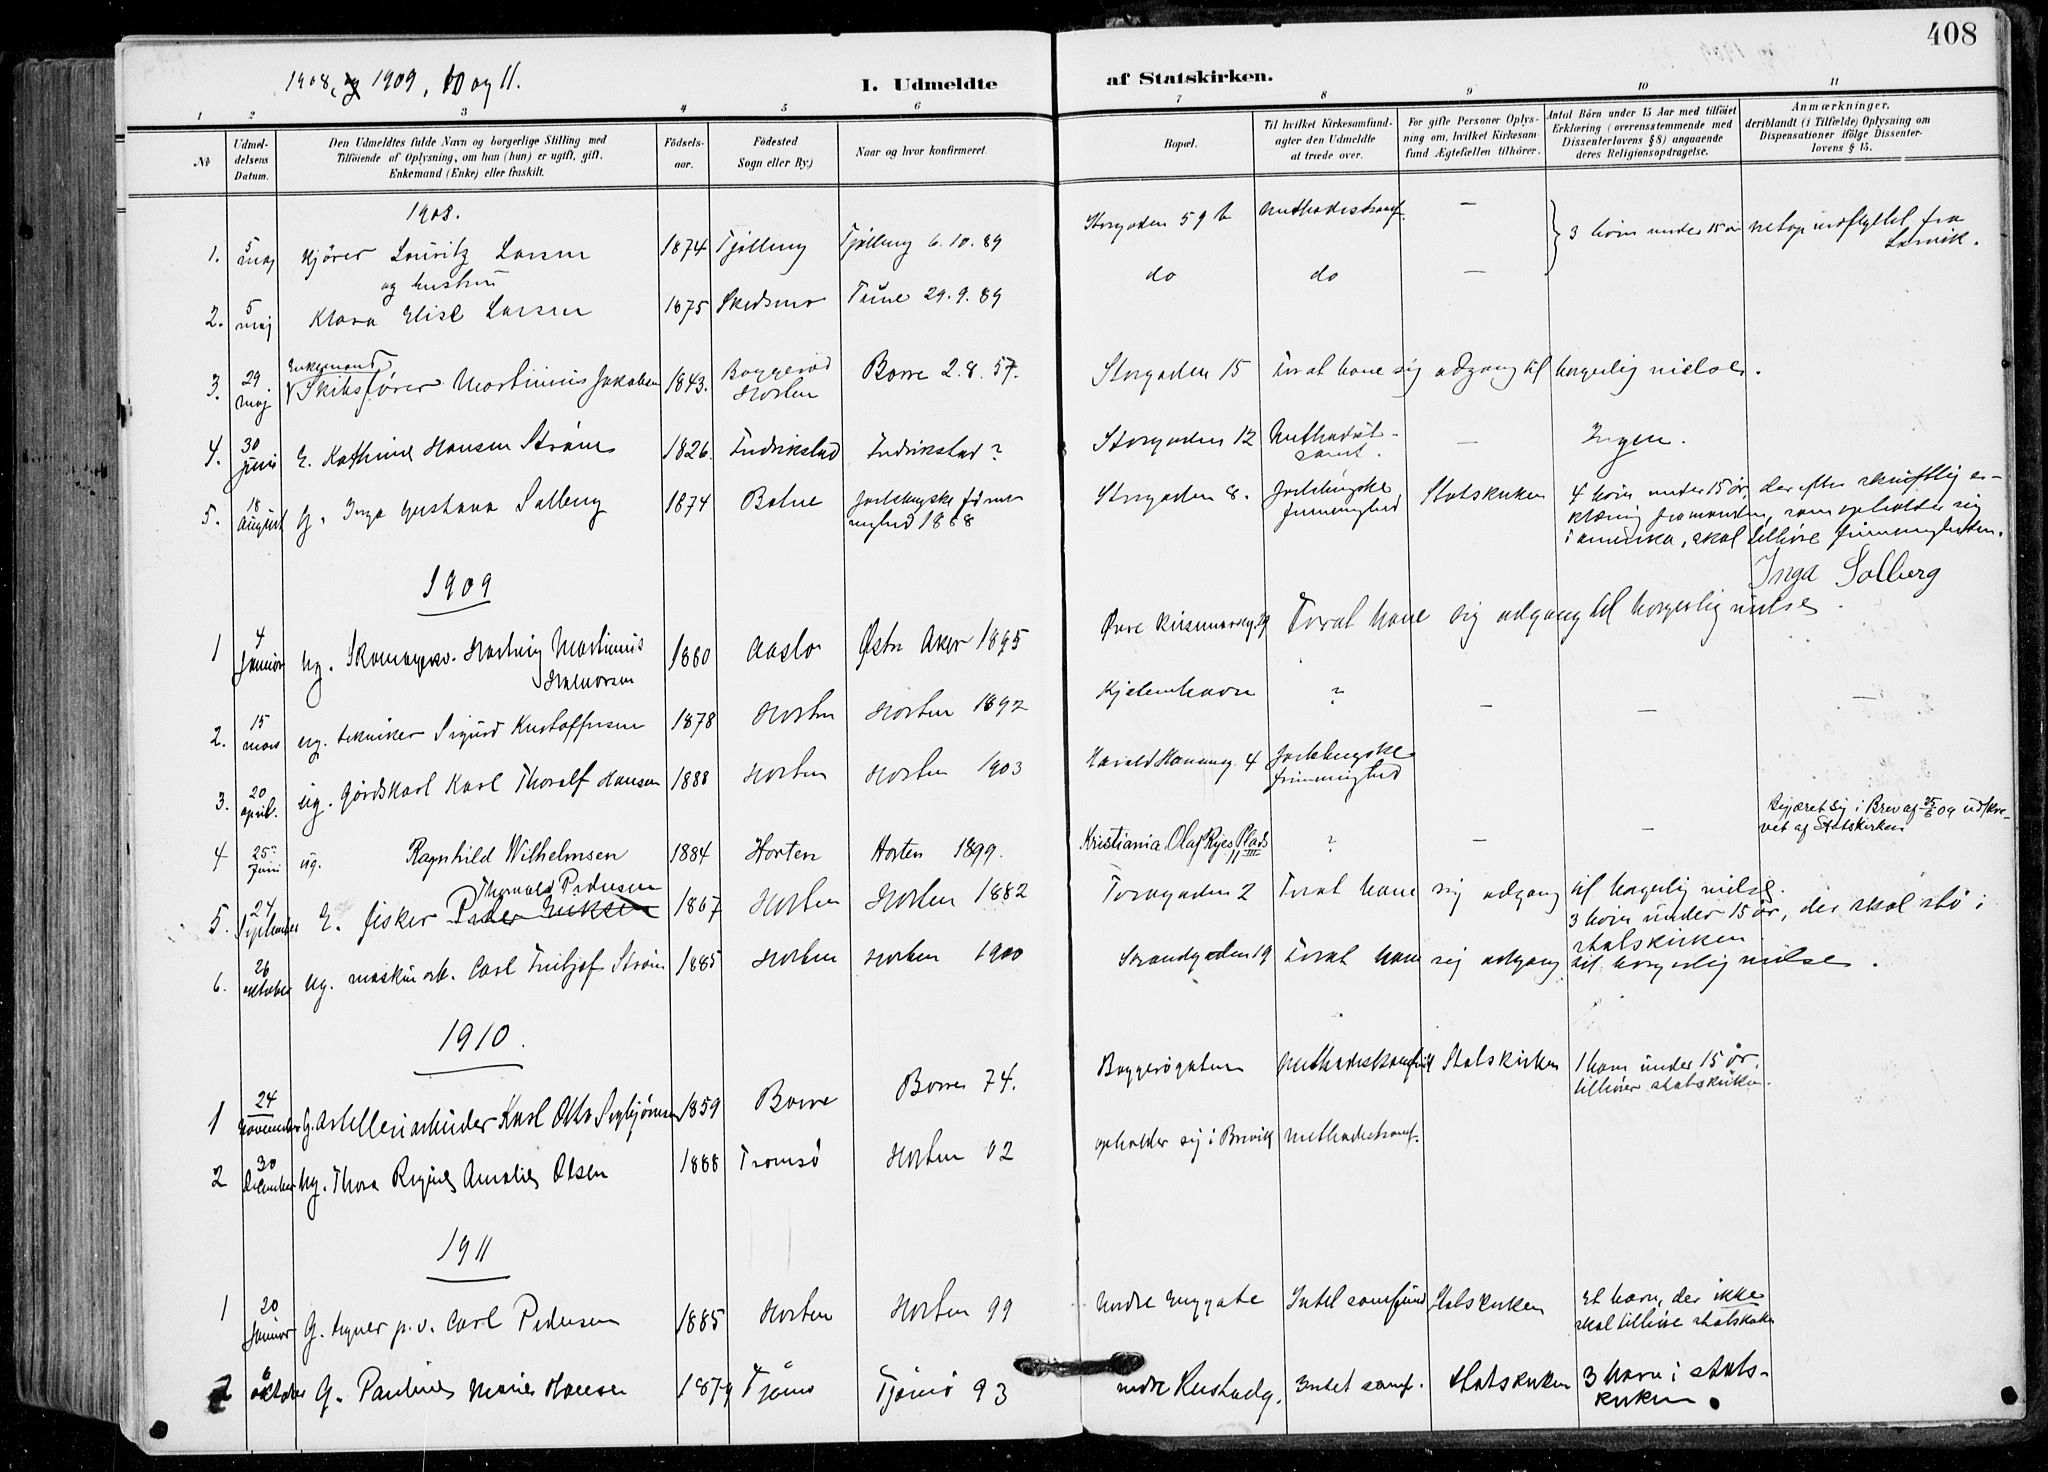 408
1908, og 1909, 10 og 11.
I. Udmeldte af Statskirken.
1 2 3 4 5 6 7 8 9 10 11
No
Udmeldelsens Datum.
Den Udmeldtes fulde Navn og borgerlige Stilling med
Tilföiende af Oplysning, om han (hun) er ugift, gift,
Enkemand (Enke) eller fraskilt.
Födselsaar.
Födested
Sogn eller By.)
Naar og hvor konfirmeret.
Bopæl.
Til hvilket Kirkesamfund
agter den Udmeldte
at træde over.
For gifte Personer Oplysning
om, hvilket Kirkesamfund
Ægtefællen tilhörer.
Antal Börn under 15 Aar med tilföiet
Erklæring (overensstemmende med
Dissenterlovens § 8) angaaende
deres Religionsopdragelse.
Anmærkninger,
deriblandt (i Tilfælde) Oplysning om
Dispensationer ifölge Dissenterlovens
§ 15.
1908.
1. 5 maj Kjører Lauritz Larsen 1874 Tjølling Tjølling 6.10.89 Storgaden 59 b Methodistsamf. — 3 børn under 15 år netop indflyttet fra Larvik.
og hustru
2. 5 maj Klara Elise Larsen 1875 Skedsmo Tune 29.9.89 do do —
3. 29 maj Enkemand Skibsfører Martinius Jakobsen 1843. Baggerød Horten Borre 2.8.57. Storgaden 15 For at have sig adgang til borgerlig vielse.
4. 30 juni E. Kathrine Hansen Strøm 1826. Fredrikstad Fredrikstad? Storgaden 12 Methodistsamf. — Ingen.
5. 18 august G. Inga Gustava Solberg 1874 Botne Jarlsbergske frimenighed 1888 Storgaden 8. Jarlsbergske frimenighed Statskirken 4 børn under 15 år, der efter skriftlig erklæring fra manden, som opholder sig i Amerika, skal tilhøre frimenigheden.
Inga Solberg
1909
1 4 januar ug. Skomagersv. Hartvig Martinius Halvorsen 1880 Aaslo Østre Aker 1895 Øvre 19 For at have sig adgang til borgerlig vielse.
2. 15 mars ug. tekniker Sigurd Kristoffersen 1878 Horten Horten 1892 Kjøbenhavn ? — — —
3. 20 april. ug. Gårdskarl Karl Thoralf Hansen 1888 Horten Horten 1903 4 Jarlsbergske frimenighed
4 25de Juni ug. Ragnhild Wilhelmsen 1884 Horten Horten 1899. Kristiania Olaf Ryes Plads 11 III ? — — Begjæret sig i Brev af 25/6 09 udskrevet af Statskirken
5. 24 September E. fisker Peder Eriksen Thorvald Pedersen 1867 Horten Horten 1882 Torvgaden 2 For at have sig adgang til borgerlig vielse.
3 børn under 15 år, der skal stå i statskirken
6. 26 oktober ug. maskinarb. Carl Fritjof Strøm 1885 Horten Horten 1900 Strandgaden 19 For at have sig adgang til borgerlig vielse.
1910.
1 24 november G. Artilleriarbeider Karl Otto Sigbjørnsen 1859 Borre Borre 74. Baggerøgaten Methodistsamfund Statskirken 1 barn under 15 år, tilhører statskirken.
2 30 December ug. Thora Regine Amalie Olsen 1888 Tromsø Horten 02 opholder sig i Brevik Methodistsamf.
1911
1 20 januar G. tegner p.v. Carl Pedersen 1885 Horten Horten 99 Nordre Enggate Intet samfund Statskirken Et barn, der ikke skal tilhøre statskirken
2 6 oktober G. Pauline Marie Hansen 1879 Tjømø Tjømø 93 nedre Intet samf. Statskirken 3 børn i statskirken.